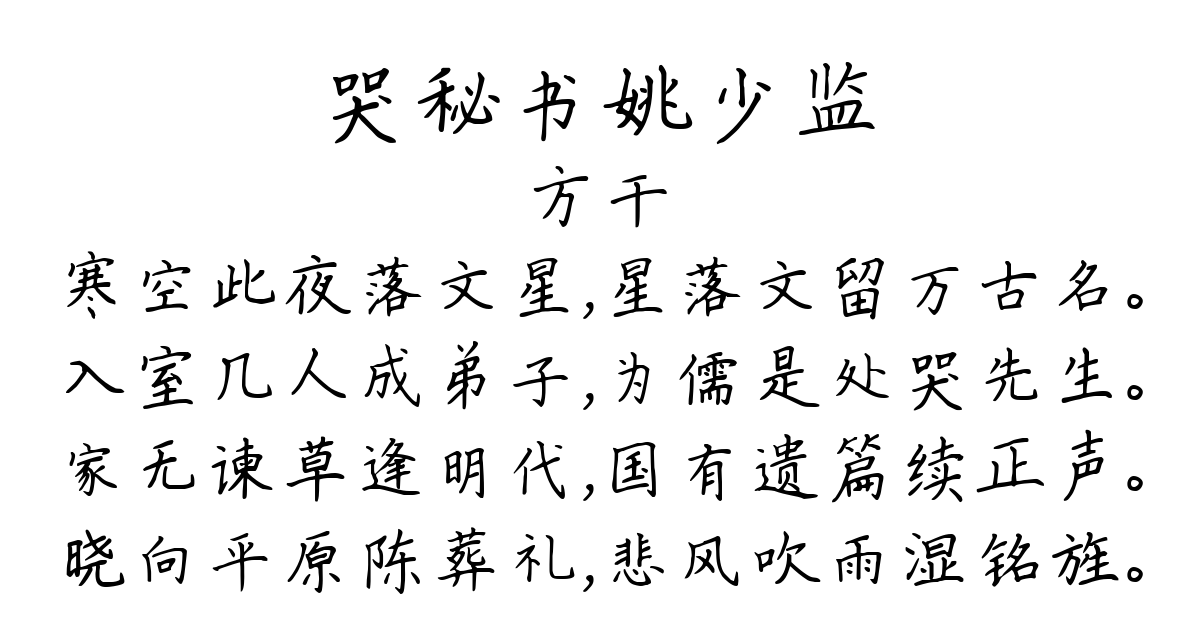 哭秘书姚少监
方干
寒空此夜落文星,星落文留万古名。
入室几人成弟子,为儒是处哭先生。
家无谏草逢明代,国有遗篇续正声。
晓向平原陈葬礼,悲风吹雨湿铭旌。